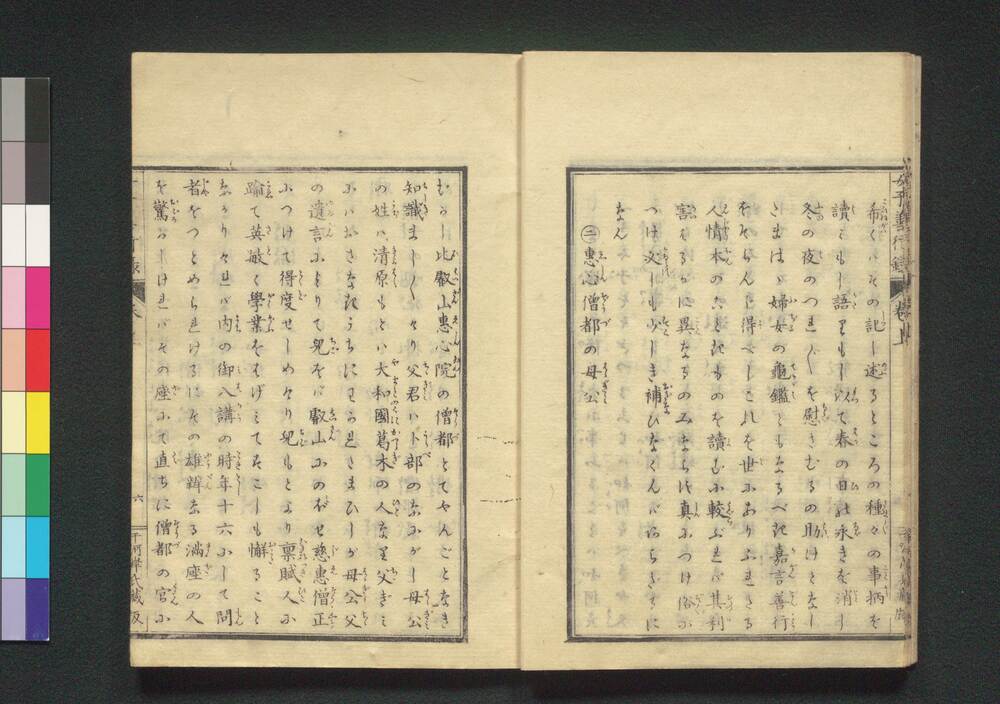 希くハその記し述るところの種々の事柄を
讀ともし語りもし以て春の日の永きを消し
冬の夜のつれ〴〵を慰さむるの助けとなし
たまはゝ婦女の龜鑑ともなるべき嘉言善行
をそらんし得べしこれを世にありふれたる
人情本のことき ものを讀むに較ぶれバ其利
害はるかに異なるのみならす真につけ俗に
つけ父しも少しき補ひなくんバあらさらに
なん
㊁惠心僧都の母公
むかし比叡山惠心院の僧都とてやんごとなき
知識ましく けり父君ハ卜部のなにがし母公
の姓ハ清原もとハ大和國葛木の人なり父ぎミ
にハおさなきうちにわかれたまひしが母公父
の遺言によりて兒をバ叡山にのぼせ慈惠僧正
につけて得度せしめけり兒もとより禀賦人に
踰て英敏く學業をはげミてすこしも懈ること
なかりけれバ内の御八講の時年十六にして問
者をつとめられけるにその雄辯なる滿座の人
を驚かしけれバその座にて直ちに僧都の官に
六
千河岸氏藏版